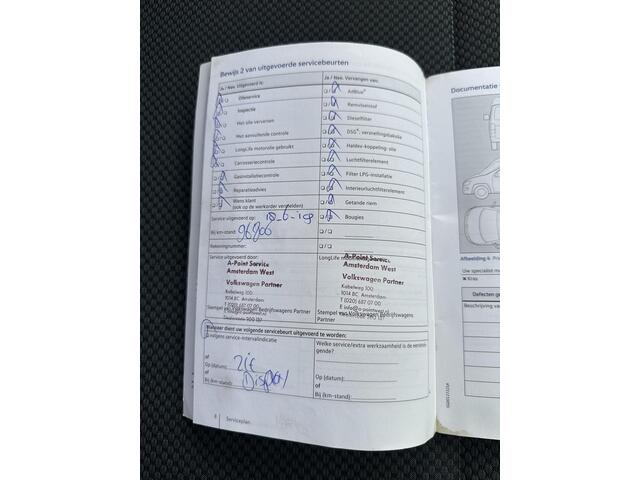 Bewijs 2 van uitgevoerde servicebeurten
Ja / Nee Uitgevoerd is:
Olieservice
Inspectie
Met olie verversen
Met aanvullende controle
LongLife motorolie gebruikt
Carrosseriecontrole
Gasinstallatiecontrole
Reparatieadvies
Wens klant
(ook op de werkorder vermelden)
Service uitgevoerd op:
Bij km-stand: 96206
Rekeningnummer:
Service uitgevoerd door:
A-Point Service
Amsterdam West
Volkswagen Partner
Kabelweg 100
1014 BC Amsterdam
T (020) 687 07 00
Stempel van Volkswagen Bedrijfswagens
Partner
Ja / Nee Vervangen van:
AdBlue®
Remvloeistof
Dieselfilter
DSG®: versnellingsbakolie
Haldex-koppeling: olie
Luchtfilterelement
Filter LPG-installatie
Interieurluchtfilterelement
Getande riem
Bougies
LongLife
A-Point Service
Amsterdam West
Volkswagen Partner
Kabelweg 100
1014 BC Amsterdam
T (020) 687 07 00
Stempel van Volkswagen Bedrijfswagens
Partner
Wanneer dient uw volgende servicebeurt uitgevoerd te worden:
volgens service-intervalindicatie
of
Op (datum):
of
Bij (km-stand):
zie
Display
Welke service/extra werkzaamheid is de eerstvol-
gende?
Op (datum):
of
Bij (km-stand):
8 Serviceplan
Documentatie
Afbeelding 4
Uw specialist
Kras
Defecten
Beschrijving